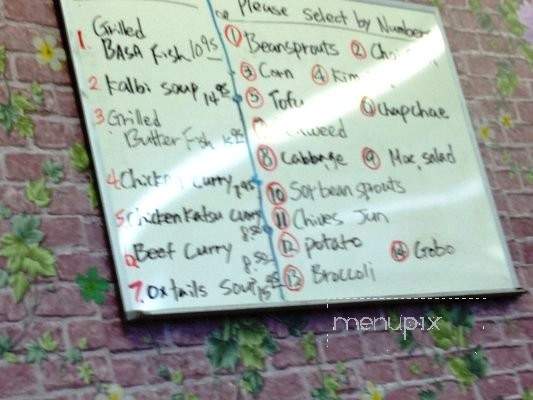 1. Grilled
BASA Fish 10.95
2 Kalbi soup 14.95
3 Grilled
Butter Fish
4. Chicken Curry 7.95
5. Chicken Katsu Curry
8.50
Beef Curry
8.50
7. Oxtails Soup 15.95
or Please Select by Number
① Beansprouts ②
③ Corn ④ Kim
⑤ Tofu ⑥ Chapchae
⑧ Cabbage ⑨ Mac, salad
⑩ Soybean sprouts
⑪ Chives Jun
⑫ potato
Gobo
⑬ Broccoli
menupix